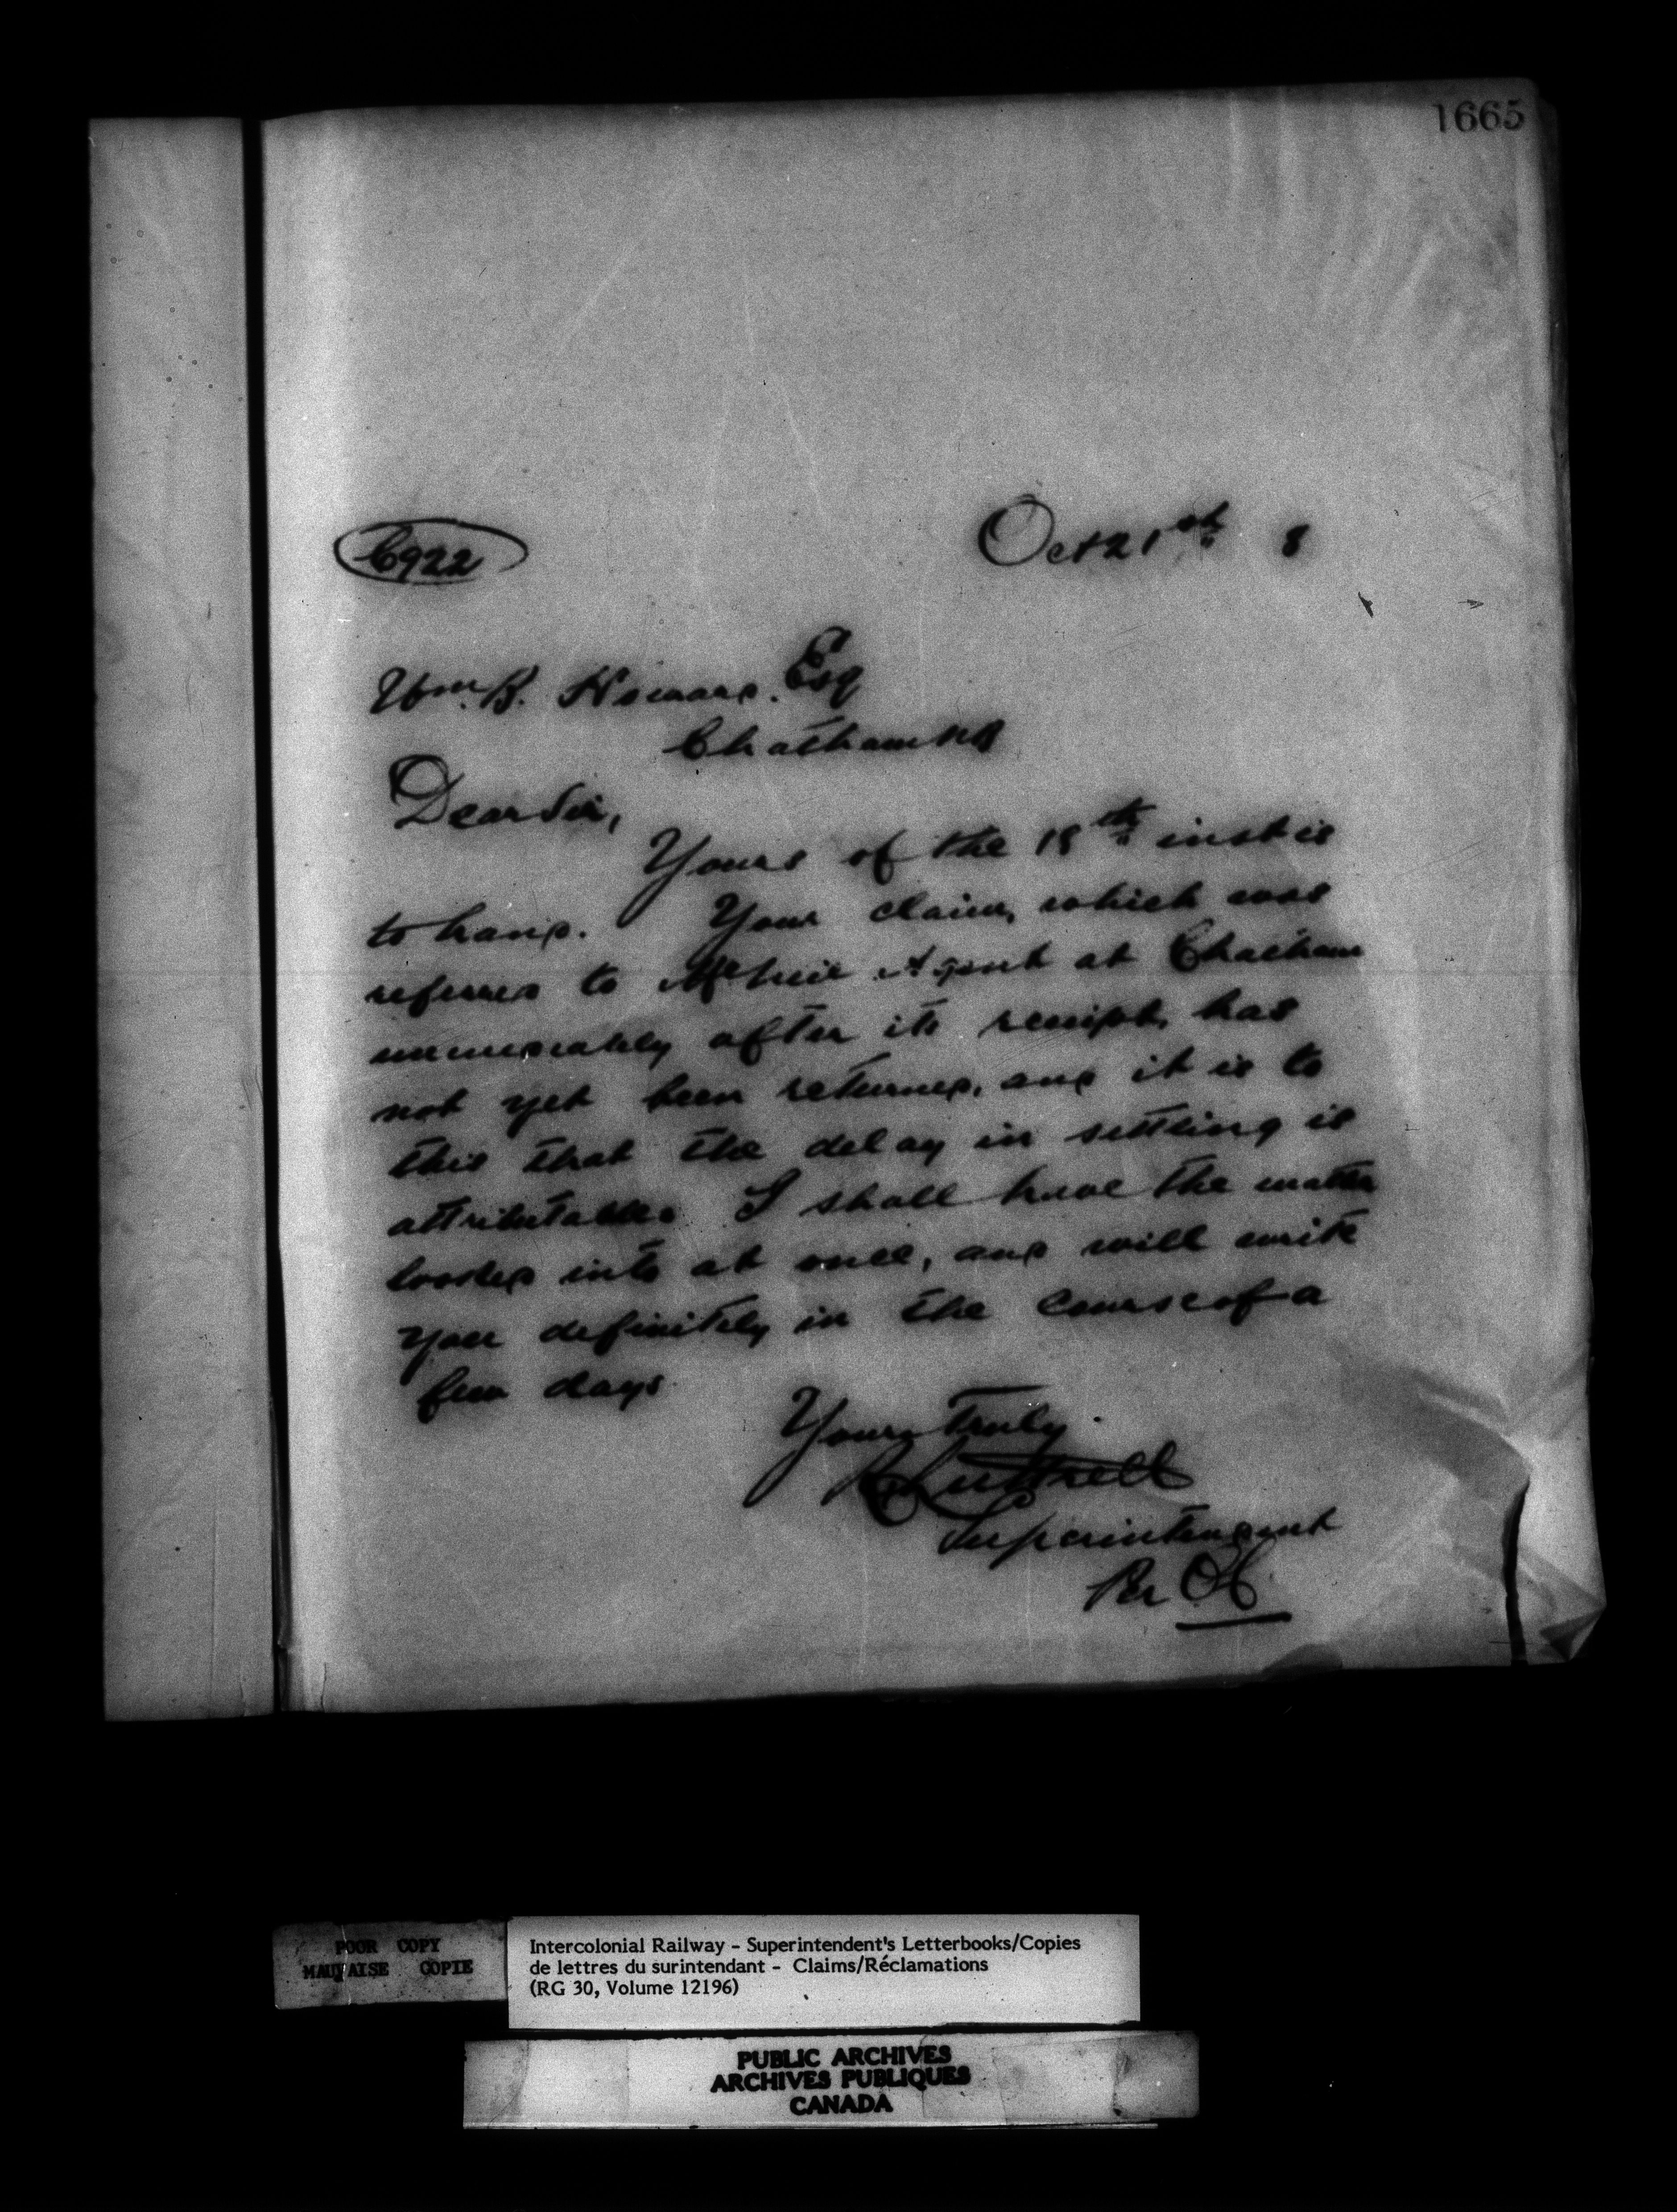 1665
C922
Oct 21st 8
Wm. B. Howard. Esq
Chatham NB
Dear Sir,
Yours of the 18th inst is
to hand. Your claim, which was
referred to Agent at Chatham
immediately after its receipt, has
not yet been returned, and it is to
this that the delay in settling is
attributable. I shall have the matter
looked into at once, and will write
you definitely in the course of a
few days
Yours Truly
Luttrell
Superintendent
Per
POOR COPY
MAUVAISE COPIE
Intercolonial Railway - Superintendent's Letterbooks/Copies
de lettres du surintendant - Claims/Réclamations
(RG 30, Volume 12196)
PUBLIC ARCHIVES
ARCHIVES PUBLIQUES
CANADA